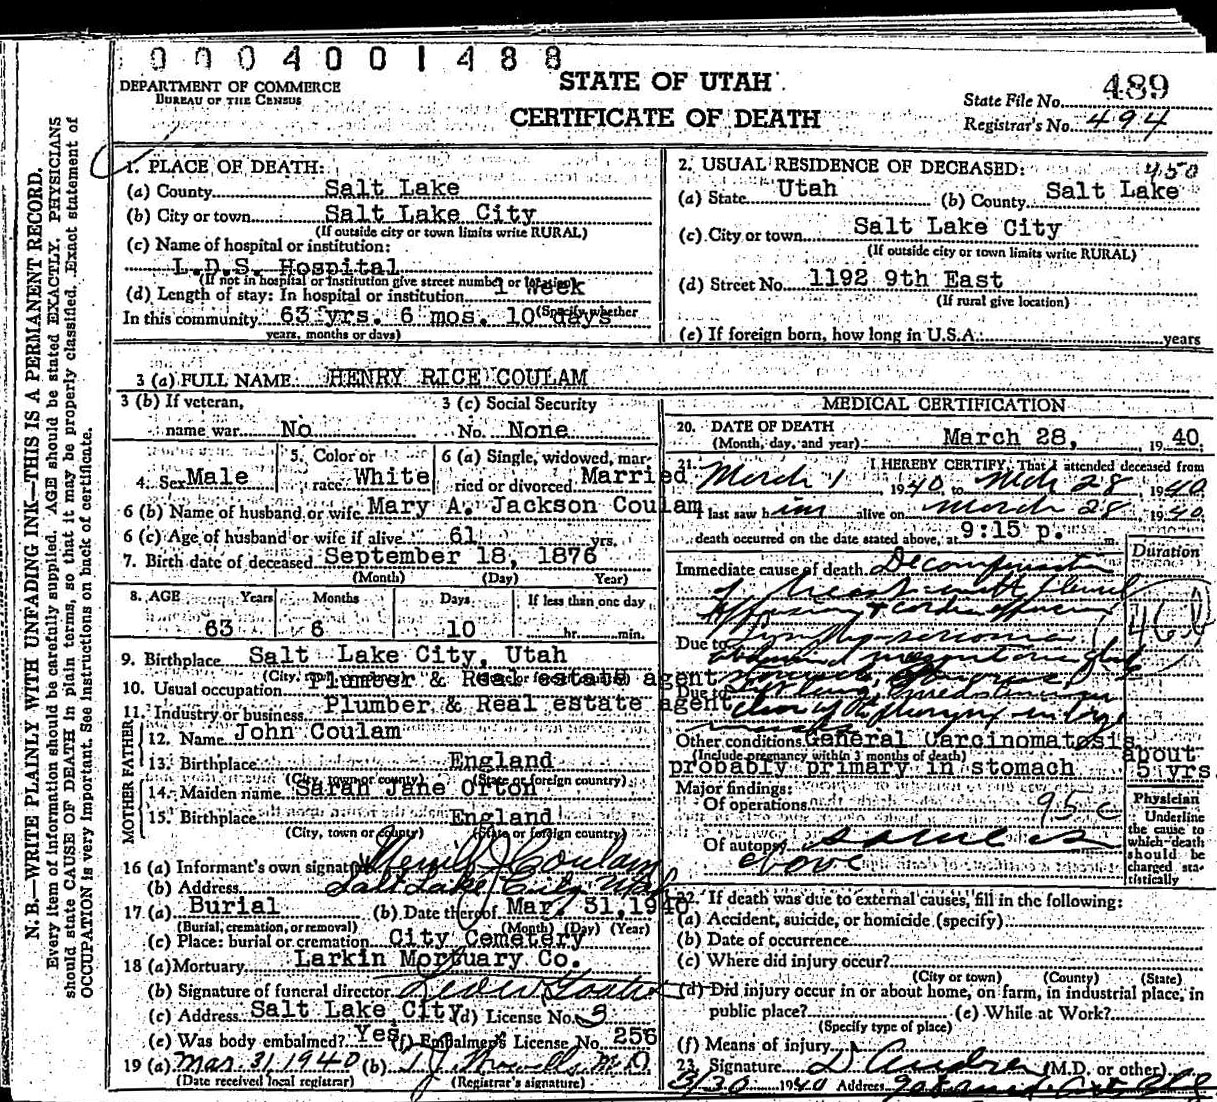 0004001488
DEPARTMENT OF COMMERCE
BUREAU OF THE CENSUS
STATE OF UTAH
CERTIFICATE OF DEATH
State File No. 489
Registrar's No. 494
N. B.—WRITE PLAINLY WITH UNFADING INK—THIS IS A PERMANENT RECORD.
Every item of information should be carefully supplied. AGE should be stated EXACTLY. PHYSICIANS
should state CAUSE OF DEATH in plain terms, so that it may be properly classified. Exact statement of
OCCUPATION is very important. See instructions on back of certificate.
1. PLACE OF DEATH:
(a) County Salt Lake
(b) City or town Salt Lake City
(If outside city or town limits write RURAL)
(c) Name of hospital or institution:
L.D.S. Hospital
(If not in hospital or institution give street number or location)
(d) Length of stay: In hospital or institution 1 week
(Specify whether
In this community 63 yrs. 6 mos. 10 days
years, months or days)
2. USUAL RESIDENCE OF DECEASED: 450
(a) State Utah (b) County Salt Lake
(c) City or town Salt Lake City
(If outside city or town limits write RURAL)
(d) Street No. 1192 9th East
(If rural give location)
(e) If foreign born, how long in U.S.A. years
3 (a) FULL NAME HENRY RICE COULAM
3 (b) If veteran,
name war No
3 (c) Social Security
No. None
4. Sex Male
5. Color or
race White
6 (a) Single, widowed, mar-
ried or divorced Married
6 (b) Name of husband or wife Mary A. Jackson Coulam
6 (c) Age of husband or wife if alive 61 yrs.
7. Birth date of deceased September 18, 1876
(Month) (Day) Year)
8. AGE Years Months Days If less than one day
63 6 10 hr. min.
9. Birthplace Salt Lake City, Utah
10. Usual occupation Plumber & Real estate agent
11. Industry or business Plumber & Real estate agent
FATHER
12. Name John Coulam
13. Birthplace England
(City, town or county) (State or foreign country)
MOTHER
14. Maiden name Sarah Jane Orton
15. Birthplace England
(City, town or county) (State or foreign country)
16 (a) Informant's own signature Merrill J Coulam
(b) Address Salt Lake City Utah
17 (a) Burial (b) Date thereof Mar. 31, 1940
(Burial, cremation, or removal) (Month) (Day) (Year)
(c) Place: burial or cremation City Cemetery
18 (a) Mortuary Larkin Mortuary Co.
(b) Signature of funeral director
(c) Address Salt Lake City (d) License No. 3
(e) Was body embalmed? Yes (f) Embalmer's License No. 256
19 (a) Mar. 31, 1940 (b) M.D.
(Date received local registrar) (Registrar's signature)
MEDICAL CERTIFICATION
20. DATE OF DEATH
(Month, day, and year) March 28, 1940
21. I HEREBY CERTIFY, That I attended deceased from
March 1, 1940 to Mch 28, 1940
I last saw him alive on March 28, 1940
death occurred on the date stated above, at 9:15 p. m.
Duration
Immediate cause of death
of heart with
Due to
Due to
Other conditions General Carcinomatosis
(Include pregnancy within 3 months of death)
probably primary in stomach about 5 yrs.
Major findings:
Of operations 95c
Of autopsy same as
above
Physician
Underline
the cause to
which death
should be
charged sta-
tistically
22. If death was due to external causes, fill in the following:
(a) Accident, suicide, or homicide (specify)
(b) Date of occurrence
(c) Where did injury occur?
(City or town) (County) (State)
(d) Did injury occur in or about home, on farm, in industrial place, in
public place? (e) While at Work?
(Specify type of place)
(f) Means of injury
23. Signature (M.D. or other)
3/30 1940 Address